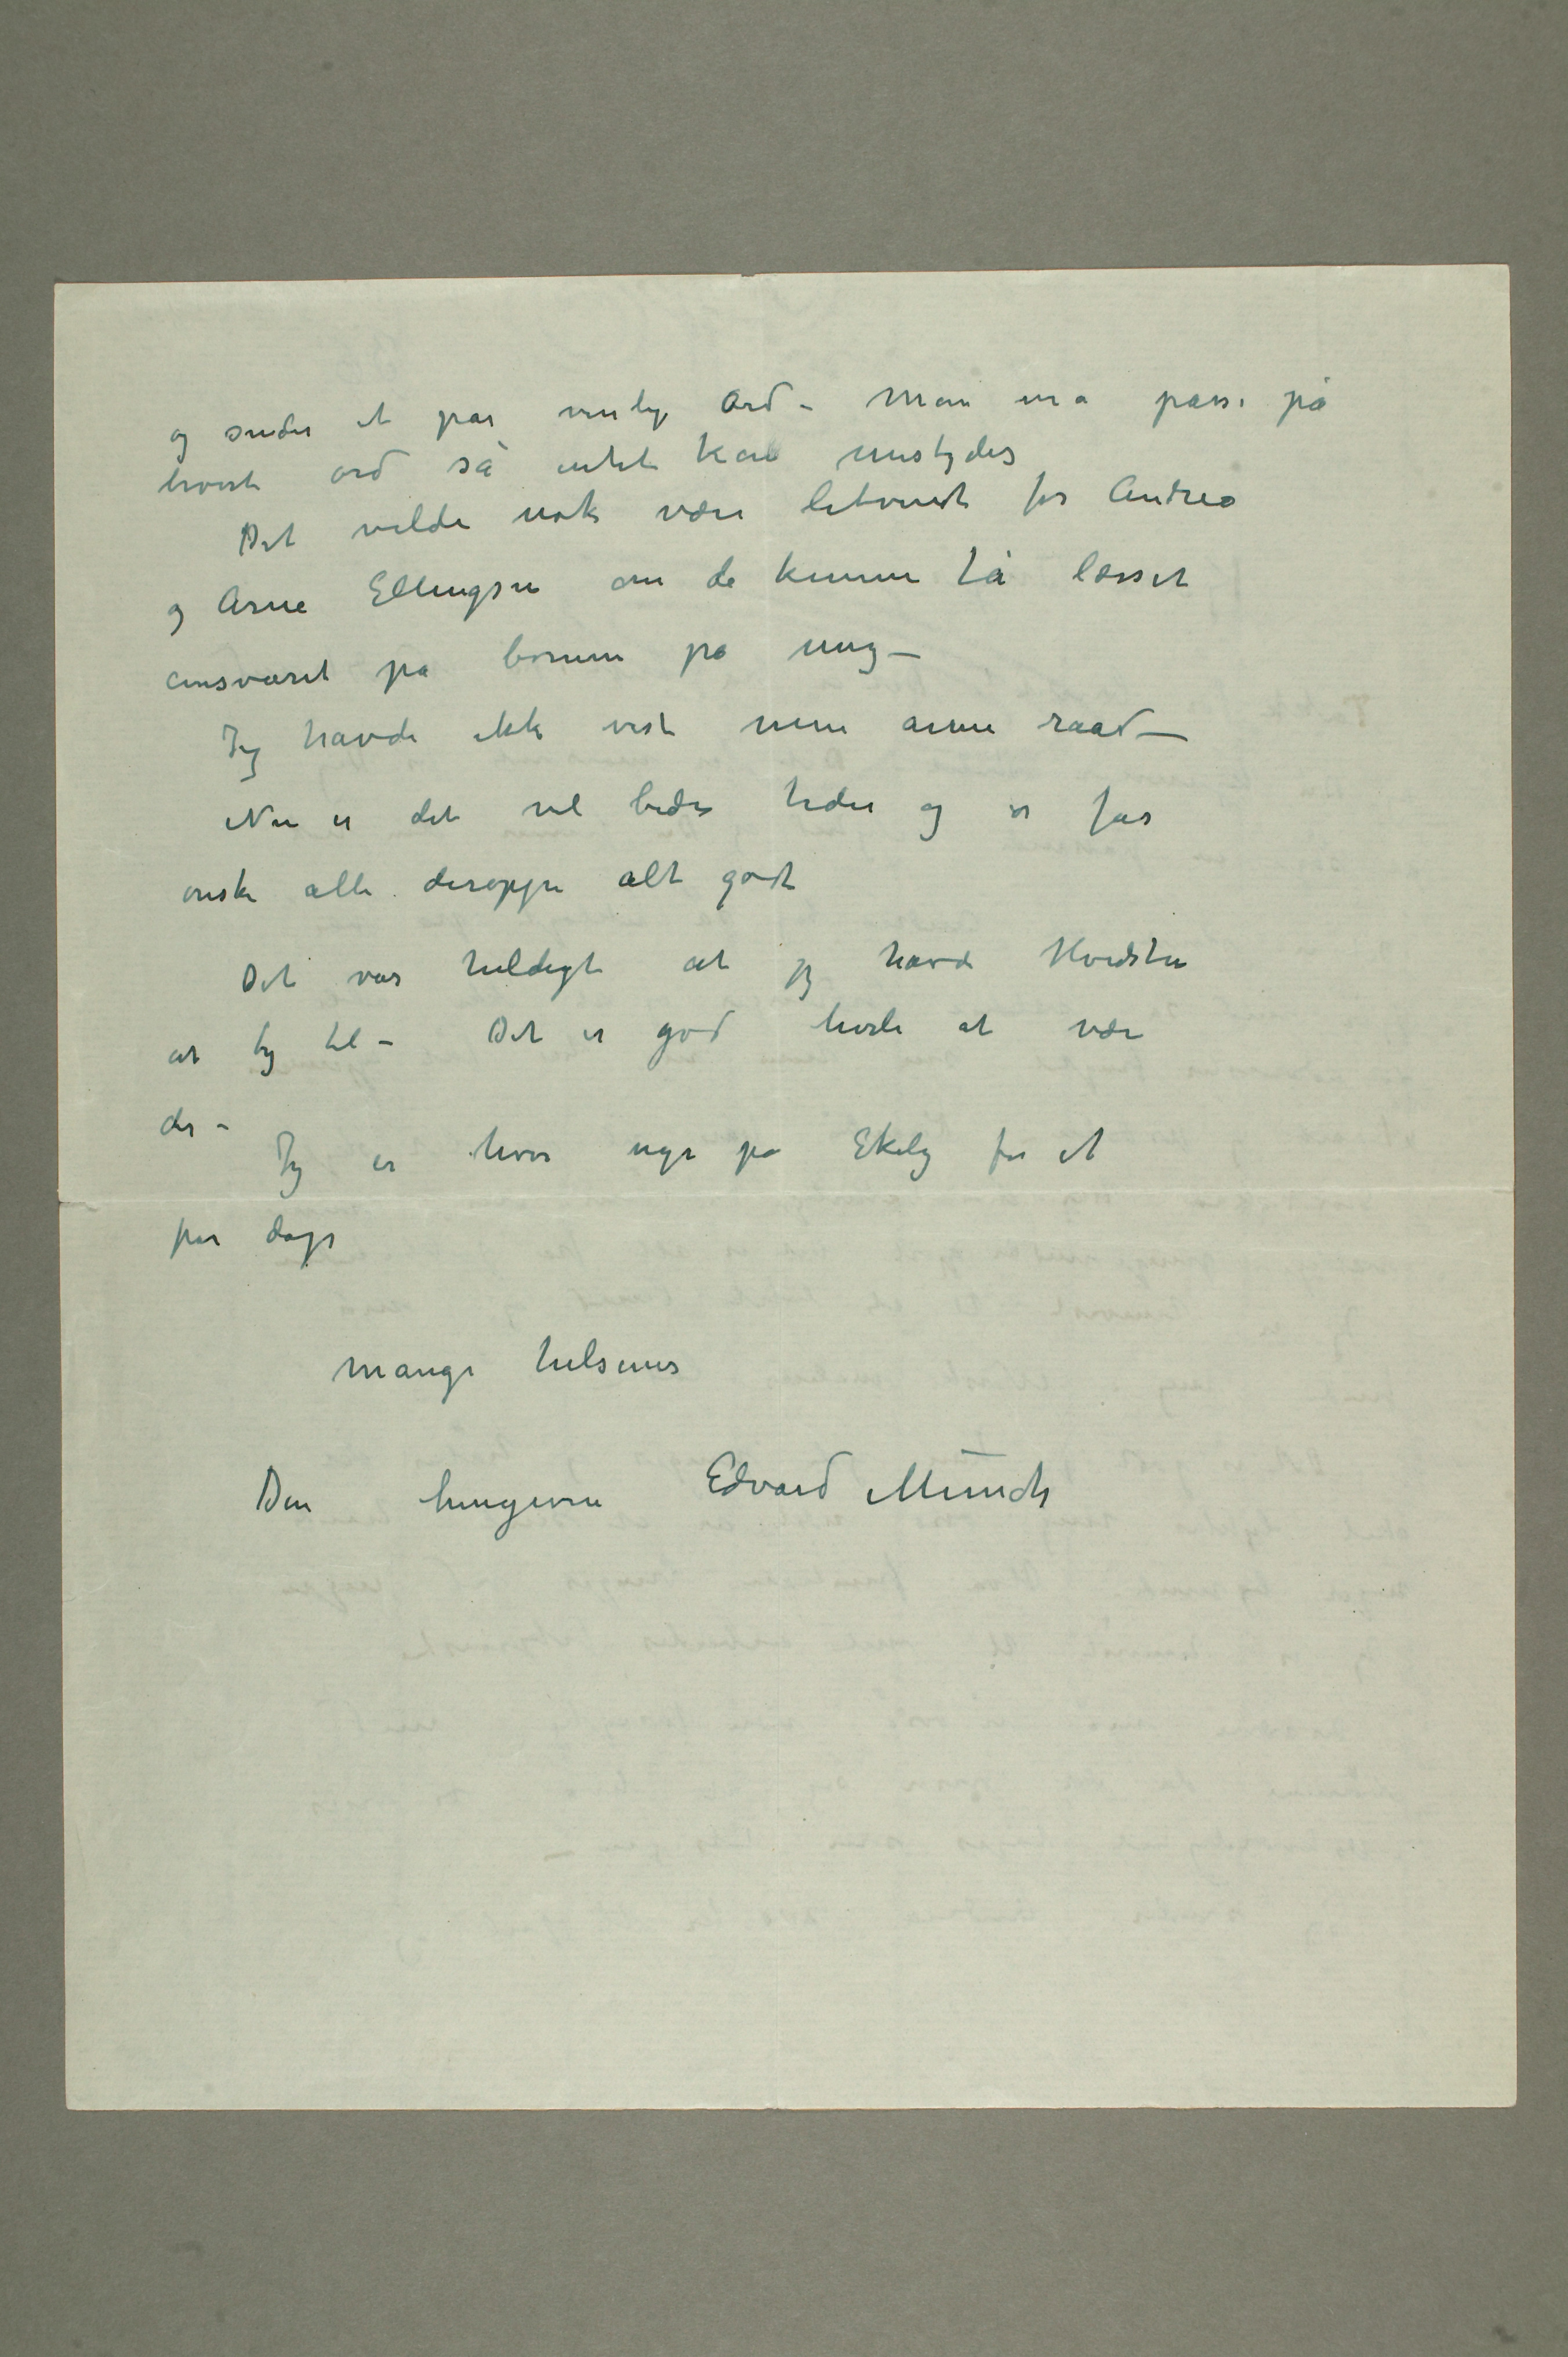 og sender et par venlige Ord – Man må passe på
hvert ord så intet kan mistydes
Det vilde nok være letvindt for Andrea
og Arne Ellingsen om de kunne få læsset
ansvaret på barnene på mig –
Jeg havde ikke vist mine arme raad –
Nu er det vel bedre tider og vi får
ønske alle deroppe alt godt
Det var heldigt at jeg havde Hvidsten
at ty til – Det er god hvile at være
der –
Jeg er hver uge på Ekely for et
par dage
Mange hilsener
Din hengivne Edvard Munch